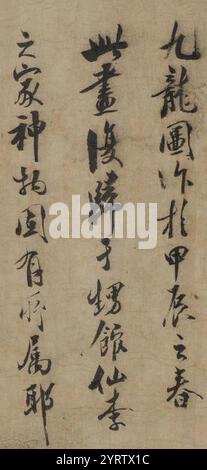 九龍圖作於甲辰之春
此畫復歸于甥館仙李
之家神物固有所屬耶
alamy
Image ID: 2RYTX1C
www.alamy.com